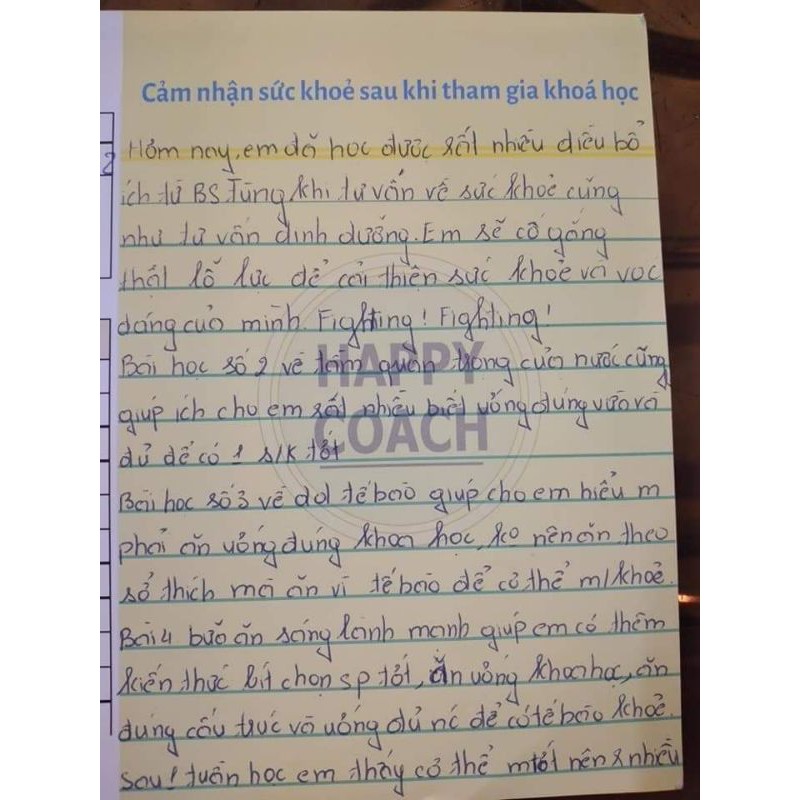 Cảm nhận sức khoẻ sau khi tham gia khoá học
Hôm nay, em đã học được rất nhiều điều bổ
ích từ BS Tùng khi tư vấn về sức khoẻ cũng
như tư vấn dinh dưỡng. Em sẽ cố gắng
thật lỗ lực để cải thiện sức khoẻ và vóc
dáng của mình. Fighting! Fighting!
Bài học số 2 về tầm quan trọng của nước cũng
giúp ích cho em rất nhiều biết uống đúng vừa và
đủ để có 1 s/k tốt
Bài học số 3 về đol tế bào giúp cho em hiểu m
phải ăn uống đúng khoa học, ko nên ăn theo
sở thích mà ăn vì tế bào để cơ thể m/khoẻ.
Bài 4 bữa ăn sáng lành mạnh giúp em có thêm
kiến thức bít chọn sp tốt, ăn uống khoa học, ăn
đúng cấu trúc và uống đủ nc để có tế bào khoẻ.
Sau 1 tuần học em thấy cơ thể m tốt nên r nhiều
HAPPY
COACH